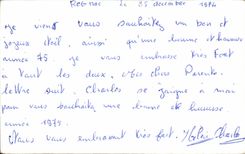 Rognac le 25 décembre 1974
Je viens vous souhaiter un bon et
joyeux Noël, ainsi qu'une bonne et heureuse
année 75. Je vous embrasse très fort
à tous les deux. Mes chers Parents.
lettre suit. Charles se joigne à moi
pour vous souhaiter une bonne et heureuse
année 1975.
Nous vous embrassons très fort.